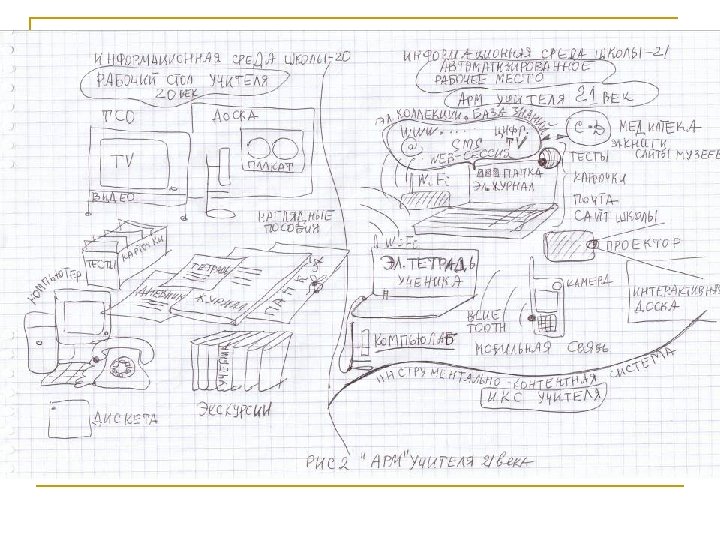 ИНФОРМАЦИОННАЯ СРЕДА ШКОЛЫ-20
РАБОЧИЙ СТОЛ УЧИТЕЛЯ
20 ВЕК
ТСО
ДОСКА
TV
ПЛАКАТ
ВИДЕО
НАГЛЯДНЫЕ
ПОСОБИЯ
ТЕСТЫ
КАРТОЧКИ
КОМПЬЮТЕР
ТЕТРАДЬ
ДНЕВНИК
ЖУРНАЛ
ПАПКА
УЧЕБНИК
ДИСКЕТА
ЭКСКУРСИИ
ИНФОРМАЦИОННАЯ СРЕДА ШКОЛЫ-21
АВТОМАТИЗИРОВАННОЕ
РАБОЧЕЕ МЕСТО
АРМ УЧИТЕЛЯ 21 ВЕК
ЭЛ. КОЛЛЕКЦИИ. БАЗА ЗНАНИЙ
WWW.... ЦИФР.
@ SMS TV
WEB-СЕССИЯ
МЕДИАТЕКА
ТЕСТЫ
САЙТЫ МУЗЕЕВ
Wi Fi
ПАПКА
ЭЛ. ЖУРНАЛ
ПОЧТА
САЙТ ШКОЛЫ
Wi-Fi
ПРОЕКТОР
ЭЛ. ТЕТРАДЬ
УЧЕНИКА
КАМЕРА
ИНТЕРАКТИВНАЯ
ДОСКА
BLUE
TOOTH
КОМПЬЮЛАБ
МОБИЛЬНАЯ СВЯЗЬ
ИНСТРУМЕНТАЛЬНО-КОНТЕНТНАЯ СИСТЕМА
ИКС УЧИТЕЛЯ
РИС 2 "АРМ" УЧИТЕЛЯ 21 века